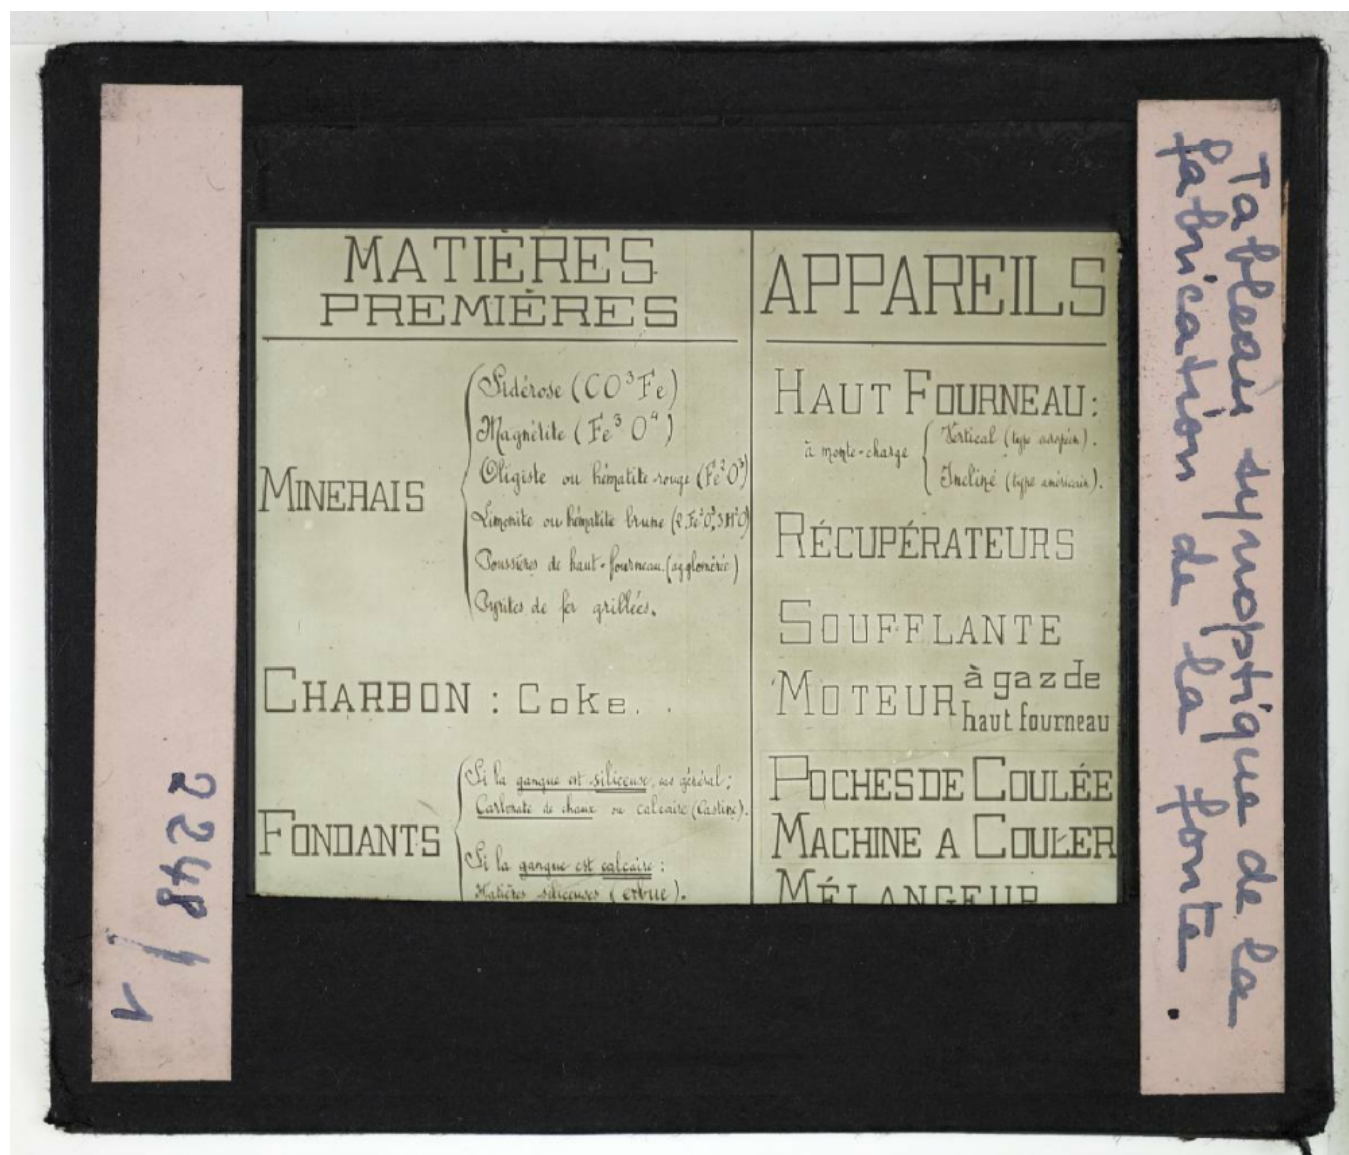 MATIÈRES
PREMIÈRES
MINERAIS
Sidérose (CO³Fe)
Magnétite (Fe³O⁴)
Oligiste ou hématite rouge (Fe²O³)
Limonite ou hématite brune (2Fe²O³,3H²O)
Poussières de haut-fourneau (agglomérée)
Pyrites de fer grillées.
CHARBON : Coke.
FONDANTS
Si la gangue est siliceuse, cas général :
Carbonate de chaux ou calcaire (Castine).
Si la gangue est calcaire :
Matières siliceuses (erbue).
APPAREILS
HAUT FOURNEAU :
à monte-charge
Vertical (type européen).
Incliné (type américain).
RÉCUPÉRATEURS
SOUFFLANTE
MOTEUR à gaz de
haut fourneau
POCHES DE COULÉE
MACHINE A COULER
MÉLANGEUR
Tableau synoptique de la
fabrication de la fonte.
2248/1